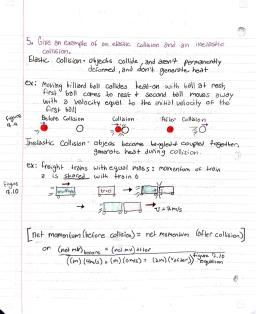 5. Give an example of an elastic collision and an inelastic
collision.
Elastic collision - objects collide, and aren't permanently
deformed, and don't generate heat
ex: Moving billiard ball collides head-on with ball at rest,
first ball comes to rest & second ball moves away
with a velocity equal to the initial velocity of the
first ball
Before Collision Collision After Collision
figure
9.9
Inelastic Collision - objects become coupled together,
generate heat during collision.
ex: freight trains with equal mass; momentum of train
is shared with train
figure
9.10
v = 2 m/s
[net momentum (before collision) = net momentum (after collision)]
or (net mv) before = (net mv) after
((m)(4m/s) + (m)(0m/s) = (2m)(v after))
figure 9.10
equation